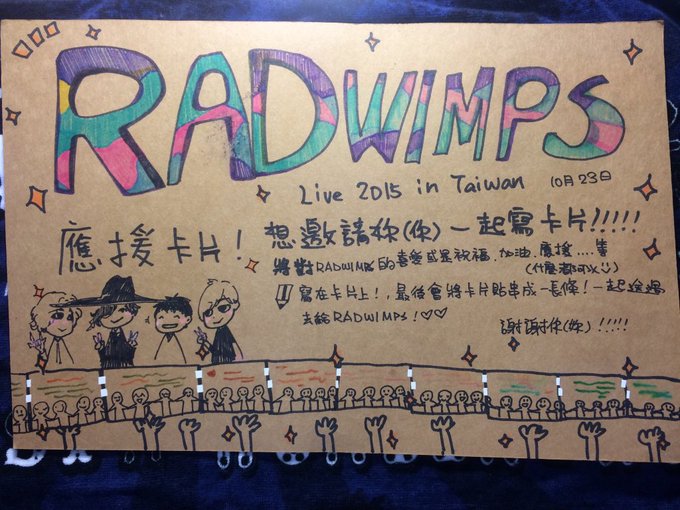 RADWIMPS
Live 2015 in Taiwan 10月23日
應援卡片!
想邀請妳(你)一起寫卡片!!!!!
將對RADWIMPS的喜愛或是祝福、加油、應援.....等
(什麼都可以)
寫在卡片上!,最後會將卡片貼串成一長條!一起送過
去給RADWIMPS!♡♡
謝謝你(妳)!!!!!